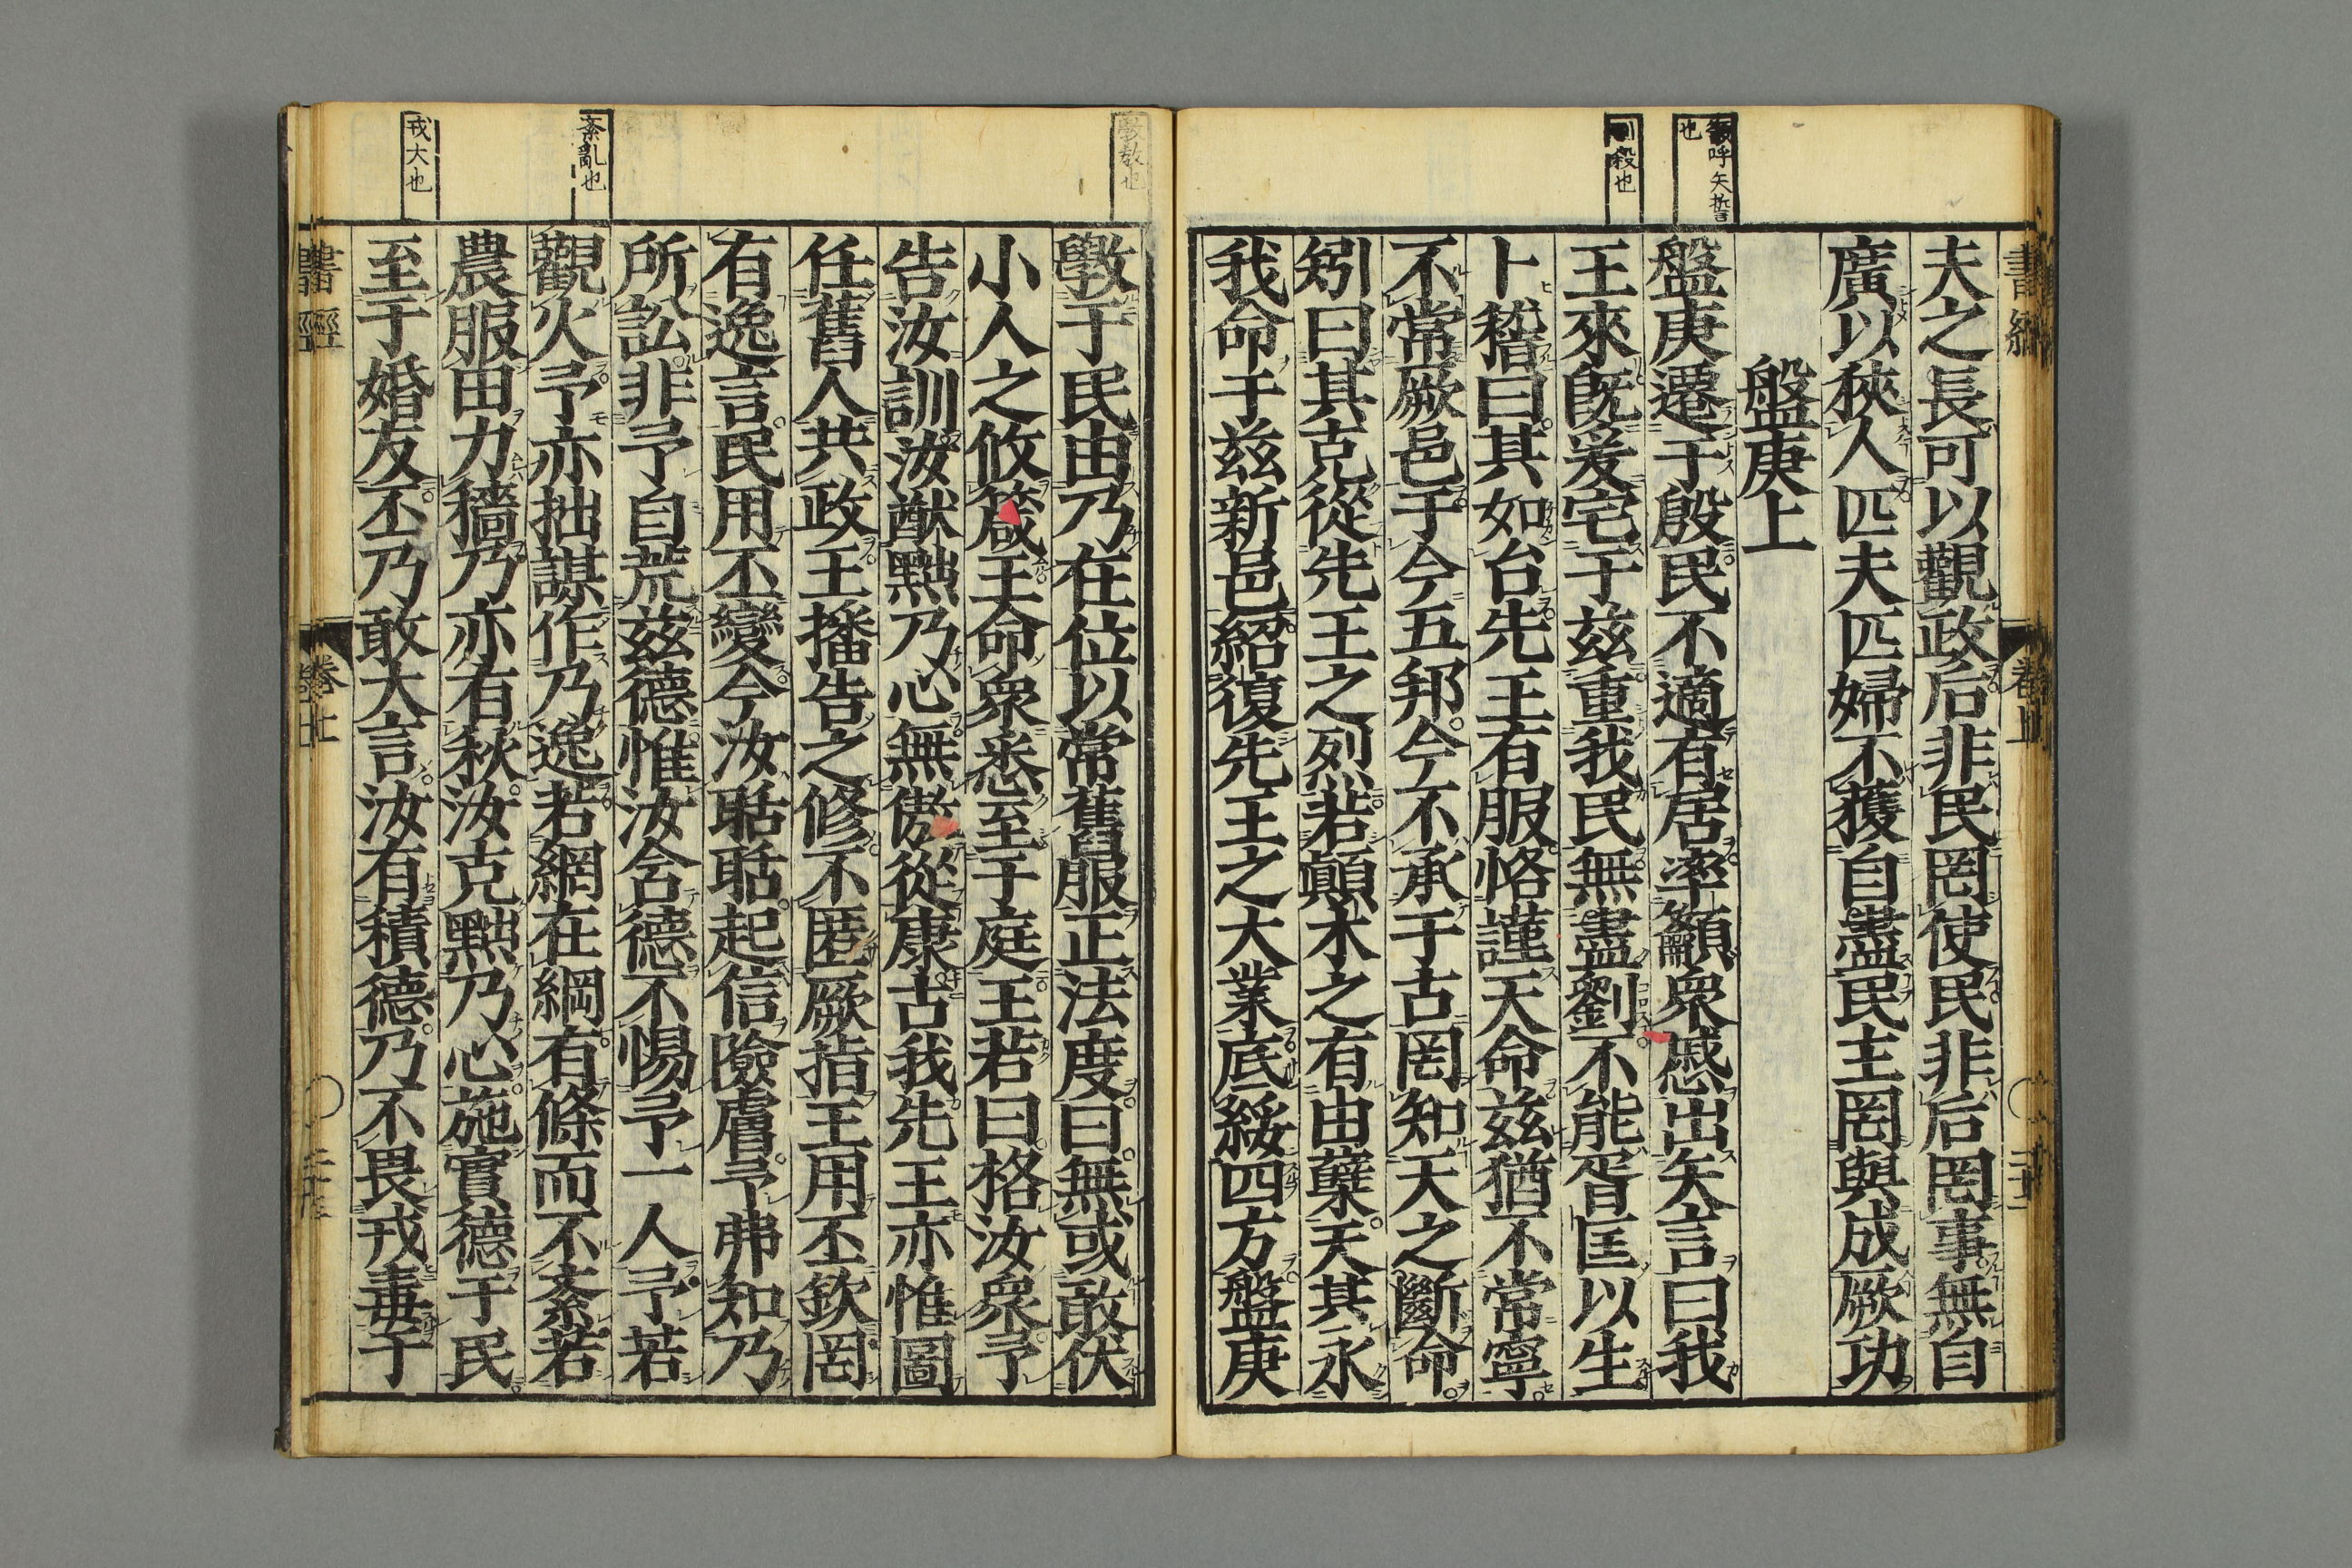 籲呼矢誓
也
劉殺也
夫之長可以觀政后非民罔使民非后罔事無自
廣以狹人匹夫匹婦不獲自盡民主罔與成厥功
盤庚上
盤庚遷于殷民不適有居率籲衆慼出矢言曰我
王來旣爰宅于兹重我民無盡劉不能胥匡以生
卜稽曰其如台先王有服恪謹天命兹猶不常寧
不常厥邑于今五邦今不承于古罔知天之斷命
矧曰其克從先王之烈若顚木之有由蘖天其永
我命于兹新邑紹復先王之大業底綏四方盤庚
斆敎也
紊亂也
戎大也
斆于民由乃在位以常舊服正法度曰無或敢伏
小人之攸箴王命衆悉至于庭王若曰格汝衆予
告汝訓汝猷黜乃心無傲從康古我先王亦惟圖
任舊人共政王播告之修不匿厥指王用丕欽罔
有逸言民用丕變今汝聒聒起信險膚予弗知乃
所訟非予自荒兹德惟汝含德不惕予一人予若
觀火予亦拙謀作乃逸若網在綱有條而不紊若
農服田力穡乃亦有秋汝克黜乃心施實德于民
至于婚友丕乃敢大言汝有積德乃不畏戎毒于
書經
卷上